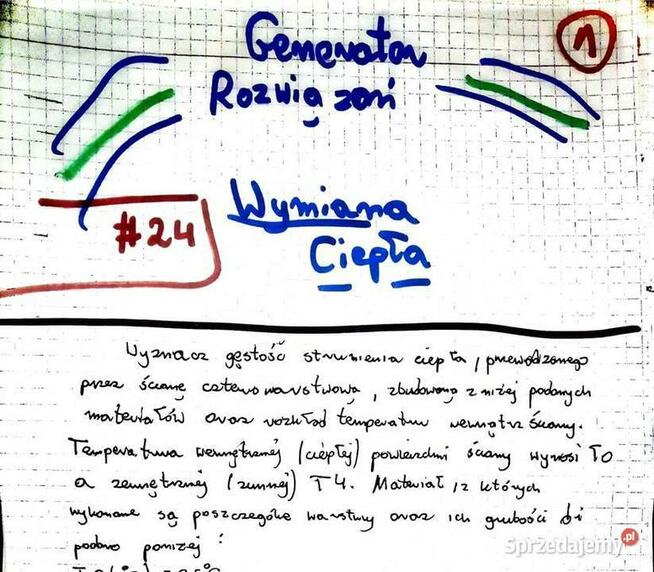 1
Generator
Rozwiązań
#24
Wymiana
Ciepła
Wyznacz gęstość strumienia ciepła, przewodzonego
przez ścianę czterowarstwową, zbudowaną z niżej podanych
materiałów oraz rozkład temperatur wewnątrz ściany.
Temperatura wewnętrznej (ciepłej) powierzchni ściany wynosi T0
a zewnętrznej (zimnej) T4. Materiał, z których
wykonane są poszczególne warstwy oraz ich grubości
podano poniżej:
Sprzedajemy.pl